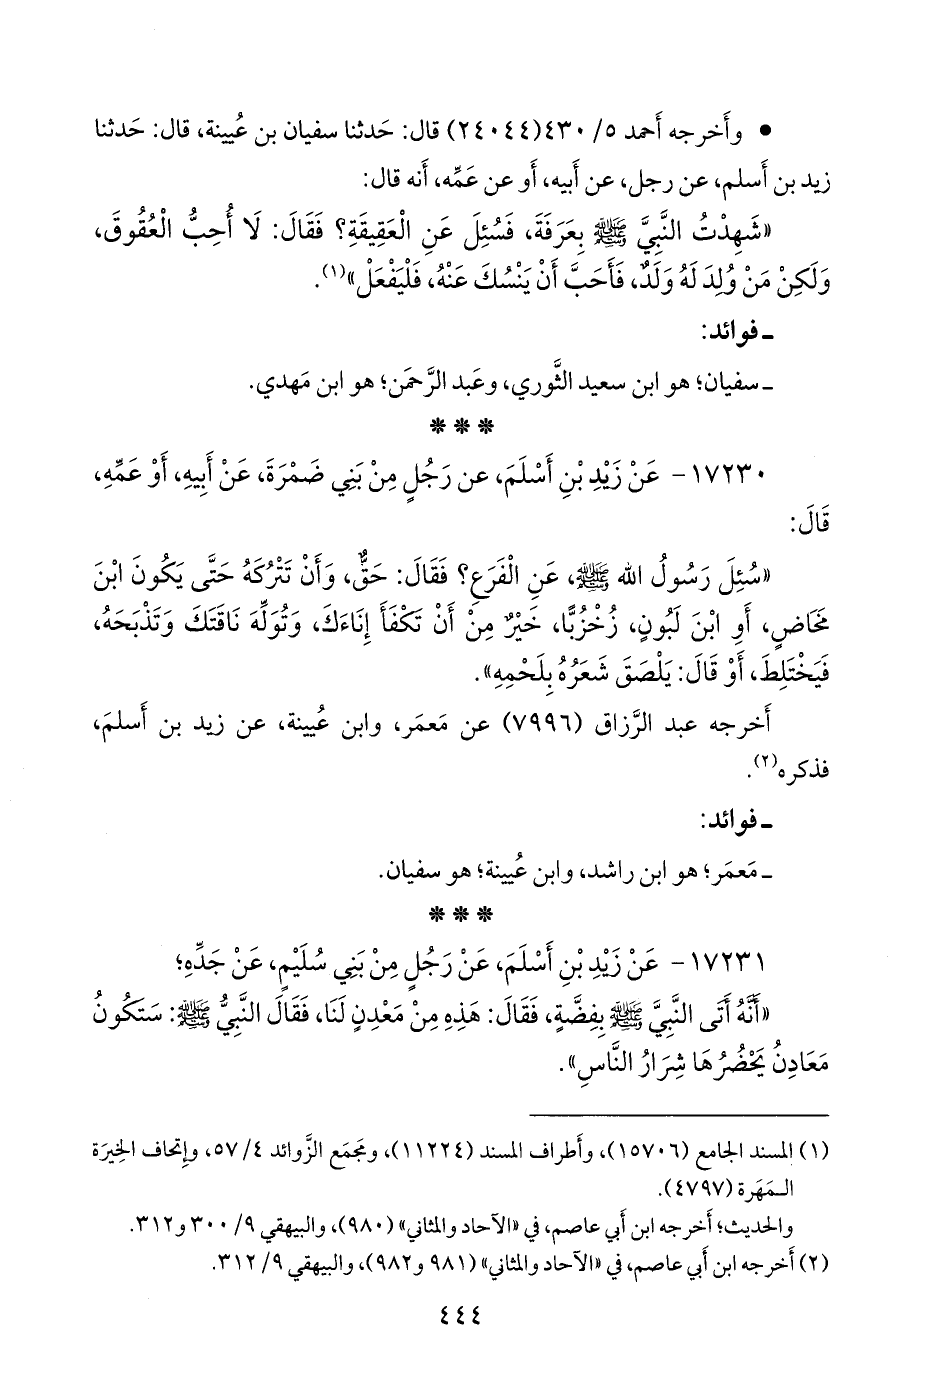 • وأَخرجه أَحمد ٥/ ٤٣٠(٢٤٠٤٤) قال: حَدثنا سفيان بن عُيينة، قال: حَدثنا
زيد بن أَسلم، عن رجل، عن أَبيه، أَو عن عَمِّه، أَنه قال:
«شَهِدْتُ النَّبِيَّ ﷺ بِعَرَفَةَ، فَسُئِلَ عَنِ الْعَقِيقَةِ؟ فَقَالَ: لَا أُحِبُّ الْعُقُوقَ،
وَلَكِنْ مَنْ وُلِدَ لَهُ وَلَدٌ، فَأَحَبَّ أَنْ يَنْسُكَ عَنْهُ، فَلْيَفْعَلْ»(١).
ـ فوائد:
ـ سفيان؛ هو ابن سعيد الثَّوري، وعَبد الرَّحمَن؛ هو ابن مَهدي.
* * *
١٧٢٣٠- عَنْ زَيْدِ بْنِ أَسْلَمَ، عن رَجُلٍ مِنْ بَنِي ضَمْرَةَ، عَنْ أَبِيهِ، أَوْ عَمِّهِ،
قَالَ:
«سُئِلَ رَسُولُ الله ﷺ، عَنِ الْفَرَعِ؟ فَقَالَ: حَقٌّ، وَأَنْ تَتْرُكَهُ حَتَّى يَكُونَ ابْنَ
مَخَاضٍ، أَوِ ابْنَ لَبُونٍ، زُخْزُبًّا، خَيْرٌ مِنْ أَنْ تَكْفَأَ إِنَاءَكَ، وَتُوَلِّهَ نَاقَتَكَ وَتَذْبَحَهُ،
فَيَخْتَلِطَ، أَوْ قَالَ: يَلْصَقَ شَعَرُهُ بِلَحْمِهِ».
أَخرجه عبد الرَّزاق (٧٩٩٦) عن مَعمَر، وابن عُيينة، عن زيد بن أَسلمَ،
فذكره(٢).
ـ فوائد:
ـ مَعمَر؛ هو ابن راشد، وابن عُيينة؛ هو سفيان.
* * *
١٧٢٣١- عَنْ زَيْدِ بْنِ أَسْلَمَ، عَنْ رَجُلٍ مِنْ بَنِي سُلَيْمٍ، عَنْ جَدِّهِ؛
«أَنَّهُ أَتَى النَّبِيَّ ﷺ بِفِضَّةٍ، فَقَالَ: هَذِهِ مِنْ مَعْدِنٍ لَنَا، فَقَالَ النَّبِيُّ ﷺ: سَتَكُونُ
مَعَادِنُ يَحْضُرُهَا شِرَارُ النَّاسِ».
(١) المسند الجامع (١٥٧٠٦)، وأَطراف المسند (١١٢٢٤)، ومَجمَع الزَّوائد ٤/ ٥٧، وإِتحاف الخِيرَة
المَهَرة (٤٧٩٧).
والحديث؛ أَخرجه ابن أَبي عاصم، في «الآحاد والمثاني» (٩٨٠)، والبيهقي ٩/ ٣٠٠ و٣١٢.
(٢) أَخرجه ابن أَبي عاصم، في «الآحاد والمثاني» (٩٨١ و٩٨٢)، والبيهقي ٩/ ٣١٢.
٤٤٤